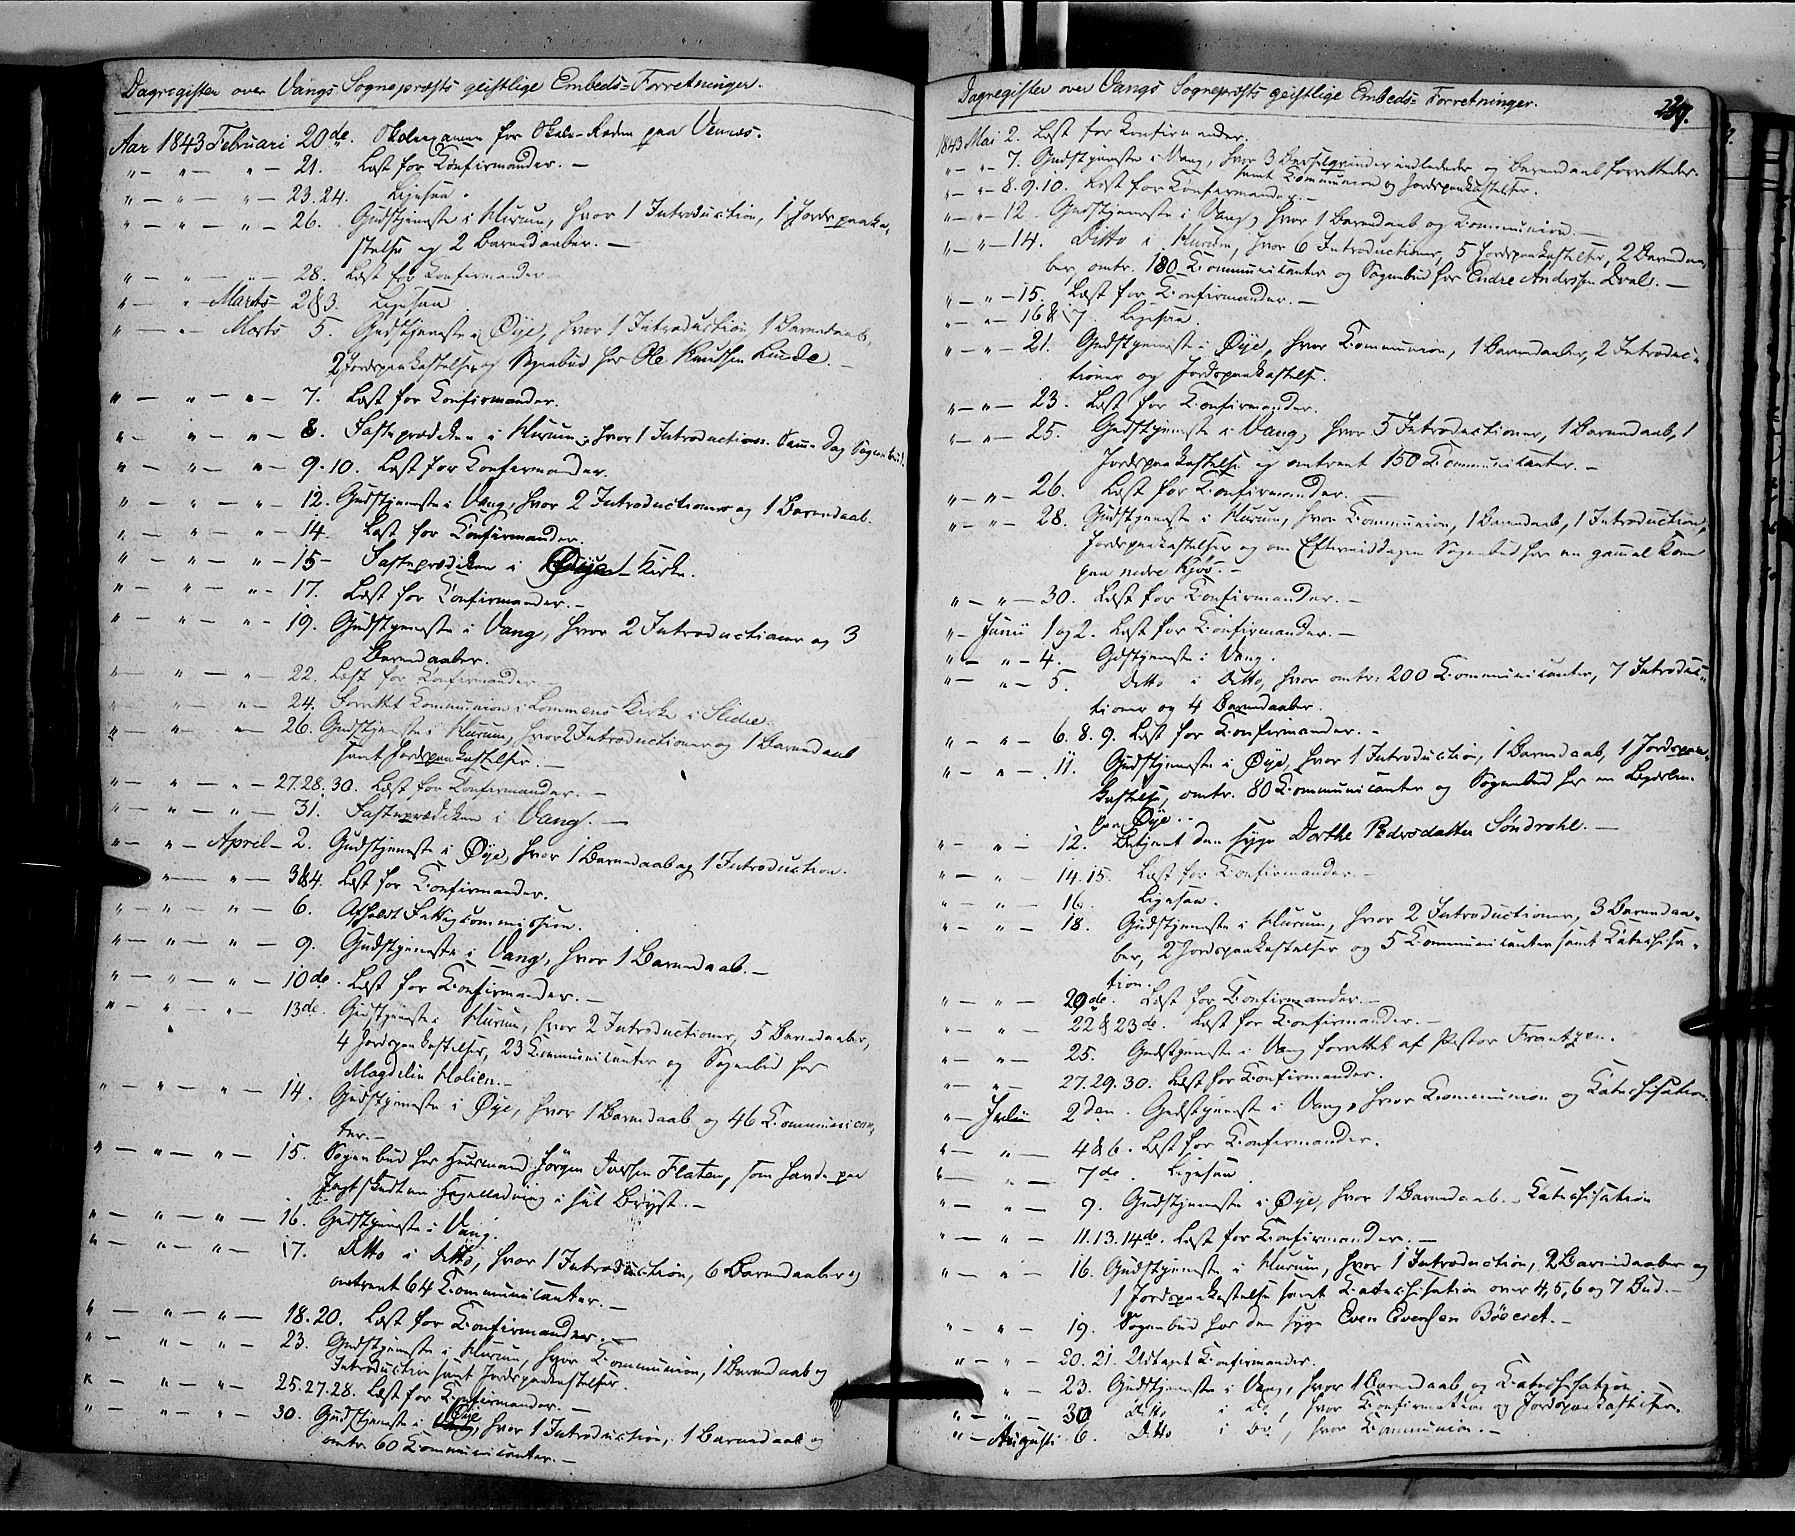 Dagregister over Vangs Sognepræsts geistlige Embeds-Forretninger.
Aar 1843 Februari 20de. Skoleexamen for Skole-Roden paa Vennes.
" — " — " — 21. Læst for Confirmander. —
" — " — " — 23. 24. Ligesaa.
" — " — " — 26. Gudstjeneste i Hurum, hvor 1 Introduction, 1 Jordspaaka-
stelse og 2 Barnedaaber. —
" — " — " — 28. Læst for Confirmander
" — " — Marts 2 & 3. Ligesaa
" — " — Marts 5. Gudstjeneste i Øye, hvor 1 Introduction, 1 Barnedaab,
2 Jordspaakastelser og Sognebud hos Ole Knudsen Kinde. —
" — " — " — 7. Læst for Confirmander.
" — " — " — 8. Fasteprædiken i Hurum, hvor 1 Introduction. Samme Dag Sognebud.
" — " — " — 9. 10. Læst for Confirmander.
" — " — " — 12. Gudstjeneste i Vang, hvor 2 Introductioner og 1 Barnedaab.
" — " — " — 14. Læst for Confirmander.
" — " — " — 15 — Fasteprædiken i Øye Kirke.
" — " — " — 17. Læst for Confirmander. —
" — " — " — 19. Gudstjeneste i Vang, hvor 2 Introductioner og 3
Barnedaaber.
" — " — " — 22. Læst for Confirmander —
" — " — " — 24. Forrettet Communion i Lommens Kirke i Slidre.
" — " — " — 26. Gudstjeneste i Hurum, hvor 2 Introductioner og 1 Barnedaab
samt Jordspaakastelser. —
" — " — " — 27. 28. 30. Læst for Confirmander. —
" — " — " — 31. Fasteprædiken i Vang. —
" — " — April — 2. Gudstjeneste i Øye, hvor 1 Barnedaab og 1 Introduction.
" — " — 3 & 4. Læst for Confirmander.
" — " — " — 6. Afholdt Fattigcommission.
" — " — " — 9. Gudstjeneste i Vang, hvor 1 Barnedaab. —
" — " — " — 10de. Læst for Confirmander. —
" — " — " — 13de. Gudstjeneste i Hurum, hvor 2 Introductioner, 5 Barnedaaber,
4 Jordspaakastelser, 23 Communicanter og Sognebud hos
Magdelin Holien. —
" — " — " — 14. Gudstjeneste i Øye, hvor 1 Barnedaab og 46 Communican-
ter. —
" — " — " — 15. Sognebud hos Huusmand Jörgen Iversen Flaten, som havde paa
Jagt skudt en Hagelladning i sit Bryst. —
" — " — " — 16. Gudstjeneste i Vang.
" — " — " — 17. Ditto i Ditto, hvor 1 Introduction, 6 Barnedaaber og
omtrent 64 Communicanter. —
" — " — " — 18. 20. Læst for Confirmander. —
" — " — " — 23. Gudstjeneste i Hurum, hvor Communion, 1 Barnedaab og
Introduction samt Jordspaakastelser.
" — " — " — 25. 27. 28. Læst for Confirmander. —
" — " — " — 30. Gudstjeneste i Øye, hvor 1 Introduction, 1 Barnedaab og
omtr. 60 Communicanter. —
Dagregister over Vangs Sognepræsts geistlige Embeds-Forretninger.
229.
1843 Mai 2. Læst for Confirmander.
" — " — 7. Gudstjeneste i Vang, hvor 3 Barselqvinder indlededes og Barnedaab forrettedes
samt Communion og Jordspaakastelser.
" — " — 8. 9. 10. Læst for Confirmander. —
" — " — 12. Gudstjeneste i Vang, hvor 1 Barnedaab og Communion. —
" — " — 14. Ditto i Hurum, hvor 6 Introductioner, 5 Jordspaakastelser, 2 Barnedaa-
ber, omtr. 180 Communicanter og Sognebud hos Endre Andersen Kvale. —
" — " — 15. Læst for Confirmander. —
" — " — 16 & 17. Ligesaa
" — " — 21. Gudstjeneste i Øye, hvor Communion, 1 Barnedaaber, 2 Introduc-
tioner og Jordspaakastelse.
" — " — 23. Læst for Confirmander.
" — " — 25. Gudstjeneste i Vang, hvor 5 Introductioner, 1 Barnedaab, 1
Jordspaakastelse og omtrent 150 Communicanter. —
" — " — 26. Læst for Confirmander. —
" — " — 28. Gudstjeneste i Hurum, hvor Communion, 1 Barnedaab, 1 Introduction,
Jordspaakastelser og om Eftermiddagen Sognebud hos en gammel Kone
paa nedre Kjøs. —
" — " — 30. Læst for Confirmander. —
" — Junii 1 og 2. Læst for Confirmander. —
" — " — 4. Gdstjeneste i Vang.
" — " — 5. Ditto i Ditto, hvor omtr. 200 Communicanter, 7 Introduc-
tioner og 4 Barnedaaber.
" — " — 6. 8. 9. Læst for Confirmander. —
" — " — 11. Gudstjeneste i Øye, hvor 1 Introduction, 1 Barnedaab, 1 Jordspaa-
kastelse, omtr. 80 Communicanter og Sognebud hos en
paa Øye. —
" — " — 12. Betjent den syge Dorthe Pedersdatter Söndrohl. —
" — " — 14. 15. Læst for Confirmander. —
" — " — 16. Ligesaa.
" — " — 18. Gudstjeneste i Hurum, hvor 2 Introductioner, 3 Barnedaa-
ber, 2 Jordspaakastelser og 5 Communicanter samt Catechisa-
tion.
" — " — 20de. Læst for Confirmander. —
" — " — 22 & 23de. Læst for Confirmander. —
" — " — 25. Gudstjeneste i Vang forrettet af Pastor Frantzen.
" — " — 27. 29. 30. Læst for Confirmander.
" — Julii 2den. Gudstjeneste i Vang, hvor Communion og Catechisation.
" — " — 4 & 6. Læst for Confirmander.
" — " — 7de. Ligesaa.
" — " — 9. Gudstjeneste i Øye, hvor 1 Barnedaab. Catechisation
" — " — 11. 13. 14de. Læst for Confirmander. —
" — " — 16. Gudstjeneste i Hurum, hvor 1 Introduction, 2 Barnedaaber og
1 Jordspaakastelse samt Catechisation over 4, 5, 6 og 7 Bud. —
" — " — 19. Sognebud hos den syge Even Evensen Böeeret. —
" — " — 20. 21. Udtaget Confirmander.
" — " — 23. Gudstjeneste i Vang, hvor 1 Barnedaab og Catechisation
" — " — 30 Ditto i do, hvor Confirmation og Jordspaakastelser.
" — Augusti 6. Ditto i do, hvor Communion. —